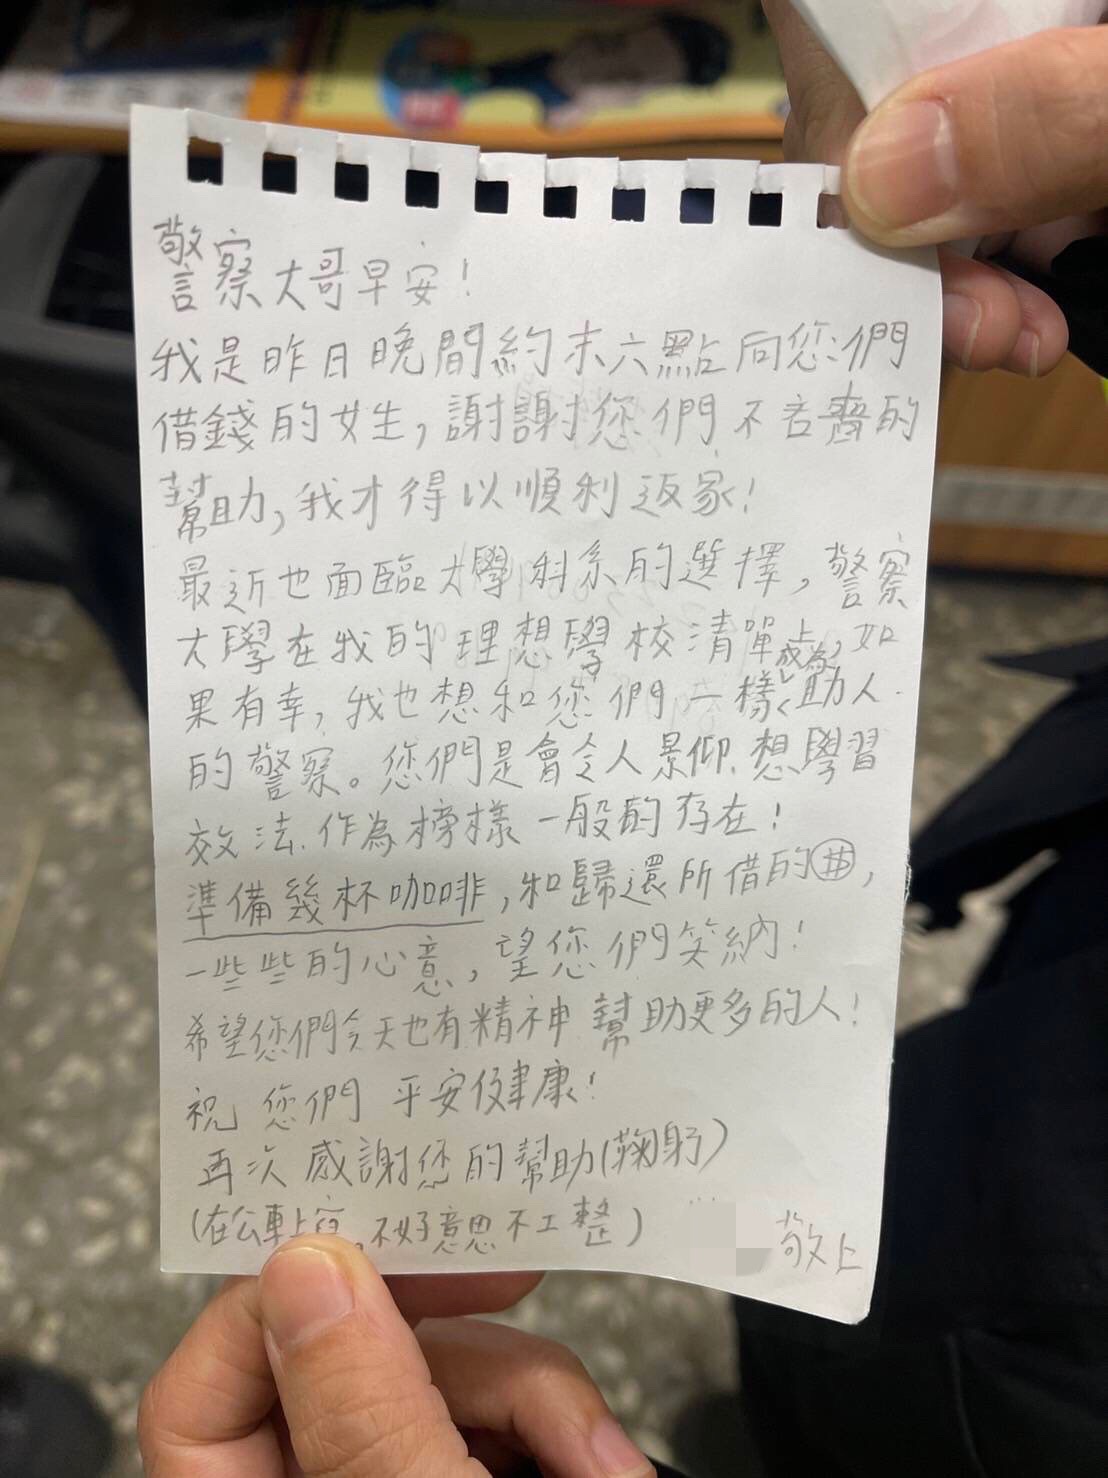 警察大哥早安!
我是昨日晚間約末六點向您們
借錢的女生,謝謝您們不吝嗇的
幫助,我才得以順利返家!
最近也面臨大學科系的選擇,警察
大學在我的理想學校清單上,如
果有幸,我也想和您們一樣成為助人
的警察。您們是會令人景仰、想學習
效法、作為榜樣一般的存在!
準備幾杯咖啡,和歸還所借的$,
一些些的心意,望您們笑納!
希望您們今天也有精神幫助更多的人!
祝 您們 平安健康!
再次感謝您的幫助(鞠躬)
(在公車上寫,不好意思不工整)
敬上